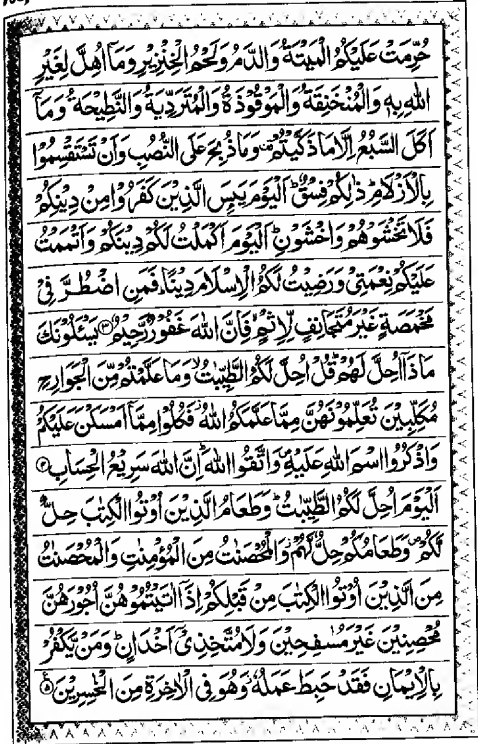 حُرِّمَتْ عَلَيْكُمُ الْمَيْتَةُ وَالدَّمُ وَلَحْمُ الْخِنْزِيْرِ وَمَآ اُهِلَّ لِغَيْرِ
اللّٰهِ بِهٖ وَالْمُنْخَنِقَةُ وَالْمَوْقُوْذَةُ وَالْمُتَرَدِّيَةُ وَالنَّطِيْحَةُ وَمَآ
اَكَلَ السَّبُعُ اِلَّا مَا ذَكَّيْتُمْ وَمَا ذُبِحَ عَلَى النُّصُبِ وَاَنْ تَسْتَقْسِمُوْا
بِالْاَزْلَامِ ؕ ذٰلِكُمْ فِسْقٌ ؕ اَلْيَوْمَ يَئِسَ الَّذِيْنَ كَفَرُوْا مِنْ دِيْنِكُمْ
فَلَا تَخْشَوْهُمْ وَاخْشَوْنِ ؕ اَلْيَوْمَ اَكْمَلْتُ لَكُمْ دِيْنَكُمْ وَاَتْمَمْتُ
عَلَيْكُمْ نِعْمَتِيْ وَرَضِيْتُ لَكُمُ الْاِسْلَامَ دِيْنًا ؕ فَمَنِ اضْطُرَّ فِيْ
مَخْمَصَةٍ غَيْرَ مُتَجَانِفٍ لِّاِثْمٍ ۙ فَاِنَّ اللّٰهَ غَفُوْرٌ رَّحِيْمٌ ۝۳ يَسْئَلُوْنَكَ
مَاذَآ اُحِلَّ لَهُمْ ؕ قُلْ اُحِلَّ لَكُمُ الطَّيِّبٰتُ ۙ وَمَا عَلَّمْتُمْ مِّنَ الْجَوَارِحِ
مُكَلِّبِيْنَ تُعَلِّمُوْنَهُنَّ مِمَّا عَلَّمَكُمُ اللّٰهُ ؗ فَكُلُوْا مِمَّآ اَمْسَكْنَ عَلَيْكُمْ
وَاذْكُرُوا اسْمَ اللّٰهِ عَلَيْهِ ۪ وَاتَّقُوا اللّٰهَ ؕ اِنَّ اللّٰهَ سَرِيْعُ الْحِسَابِ ۝۴
اَلْيَوْمَ اُحِلَّ لَكُمُ الطَّيِّبٰتُ ؕ وَطَعَامُ الَّذِيْنَ اُوْتُوا الْكِتٰبَ حِلٌّ
لَّكُمْ ۪ وَطَعَامُكُمْ حِلٌّ لَّهُمْ ؗ وَالْمُحْصَنٰتُ مِنَ الْمُؤْمِنٰتِ وَالْمُحْصَنٰتُ
مِنَ الَّذِيْنَ اُوْتُوا الْكِتٰبَ مِنْ قَبْلِكُمْ اِذَآ اٰتَيْتُمُوْهُنَّ اُجُوْرَهُنَّ
مُحْصِنِيْنَ غَيْرَ مُسٰفِحِيْنَ وَلَا مُتَّخِذِيْٓ اَخْدَانٍ ؕ وَمَنْ يَّكْفُرْ
بِالْاِيْمَانِ فَقَدْ حَبِطَ عَمَلُهٗ ؗ وَهُوَ فِي الْاٰخِرَةِ مِنَ الْخٰسِرِيْنَ ۝۵